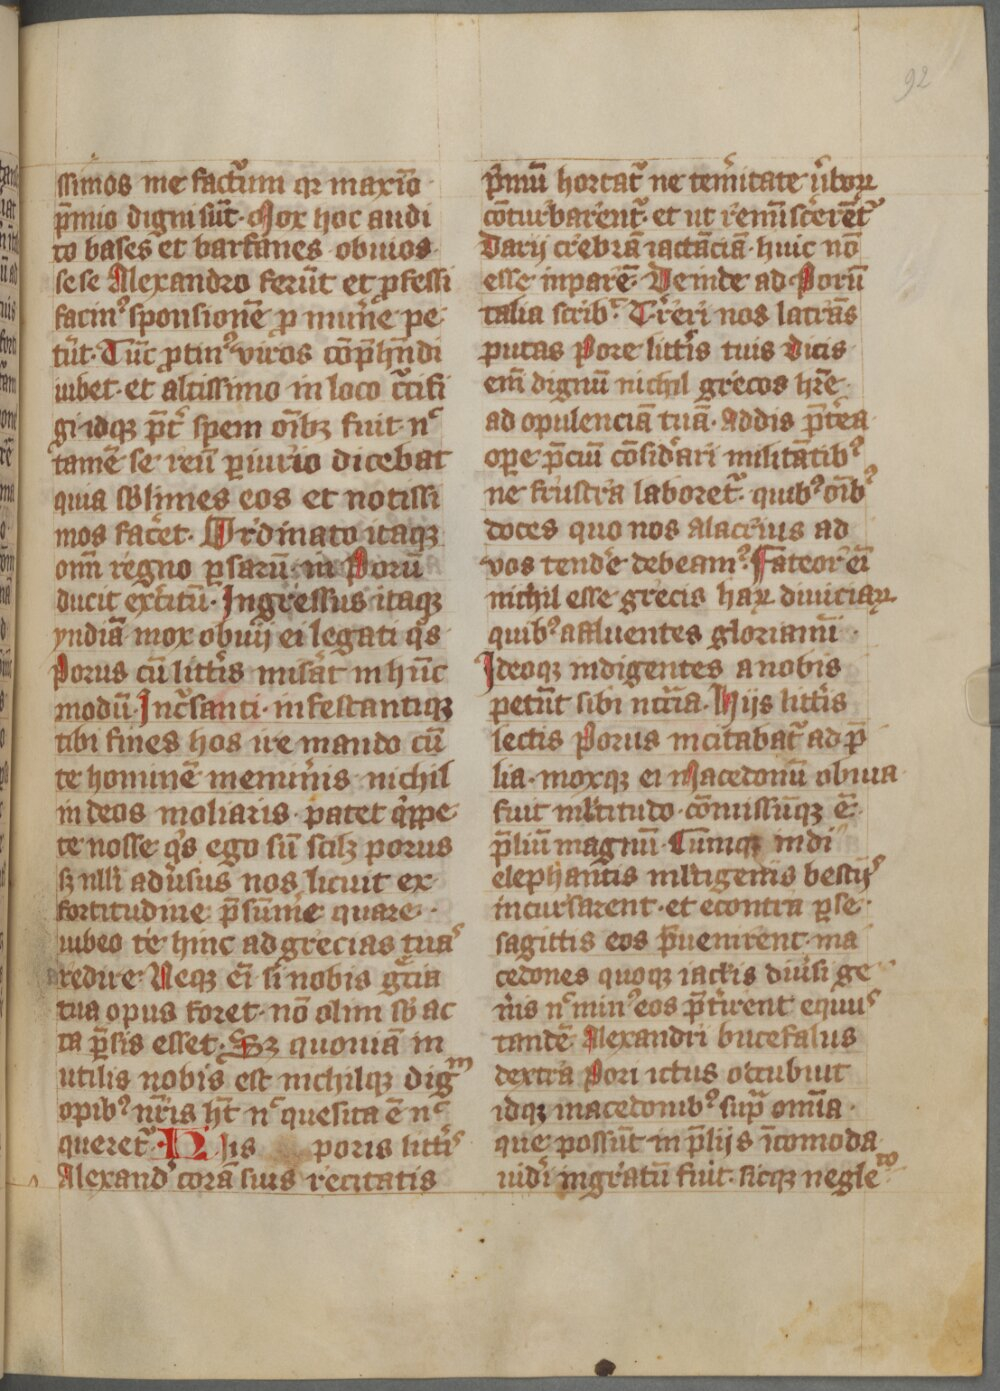 92
ssimos me factum qr maxīo
p̄mio digni sūt· Mox hoc audi
to bases et barfanes obuios
sese Alexandro ferūt et ꝓfessi
facinꝰ sponsionē ꝓ mun̄e pe
tūt· Tūc ꝓtinꝰ viros cōp̄hn̄di
iubet· et altissimo in loco c̄cifi
gi idqꝫ p̄t spem oībꝫ fuit· nͨ
tamē se reū ꝑiurio dicebat
quia sb̄limes eos et notissi
mos fac̄et· Ordinato itaqꝫ
om̄i regno ꝑsarū· in Porū
ducit exc̄itū· Ingressus itaqꝫ
yndiā mox obuij ei legati q̄s
Porus cū litt̄is mis̄at in hūc
modū· Inc̄santi· infestantiqꝫ
tibi fines hos ire mando cū
te hominē memin̄is nichil
in deos moliaris· patet qͥppe
te nosse qͥs ego sū scilꝫ porus
sꝫ nlli adūsus nos licuit ex
fortitudine p̄sūme quare
iubeo te hinc ad grecias tuas
redire· Neqꝫ ei si nobis gr̄cia
tua opus foret· nō olim sb̄ ac
ta ꝑsis esset· Sꝫ quoniā in
utilis nobis est nichilqꝫ digm
opibꝰ nr̄is ht̄ nͨ quesita ē nͨ
queret᷑· Hijs poris litt̄is
Alexandͦ corā suis recitatis
p̄mū hortat᷑ ne tem̄itate v̄boꝝ
cōturbarent᷑· et ut remīsc̄erēt᷑
Darij crebrā iactāciā· huic nō
esse inparē· Deinde ad Porū
talia scribͭ· T̄reri nos latrās
putas Pore litt̄is tuis dicis
em̄ dignū nichil grecos hr̄e
ad opulenciā tuā· Addis p̄t̄ea
oꝑe p̄ciū cōsid̄ari militātibꝰ
ne frustra laboret᷑· quibꝰ oībꝰ
doces quo nos alacrius ad
vos tend̄e debeamꝰ· Fateor ei
nichil esse grecis haꝝ diuiciaꝝ
quibꝰ affluentes gloriamī·
Ideoqꝫ indigentes a nobis
petūt sibi nc̄c̄ria· Hijs litt̄is
lectis Porus incitabat᷑ ad p̄
lia· moxqꝫ ei Macedonū obuia
fuit ml̄titudo· cōmissūqꝫ ē
p̄liū magnū· Cūmqꝫ indi
elephantis ml̄tigenis bestijs
incursarent· et econtra ꝑse
sagittis eos p̄uenirent· ma
cedones quoqꝫ iactis diūsi ge
n̄is nͨ minꝰ eos p̄t̄irent equus
tandē Alexandri bucefalus
dextra Pori ictus occubuit
idqꝫ macedonibꝰ supͣ omīa
que possūt in p̄lijs īcomoda
uid̄i ingratū fuit· sicqꝫ negleto